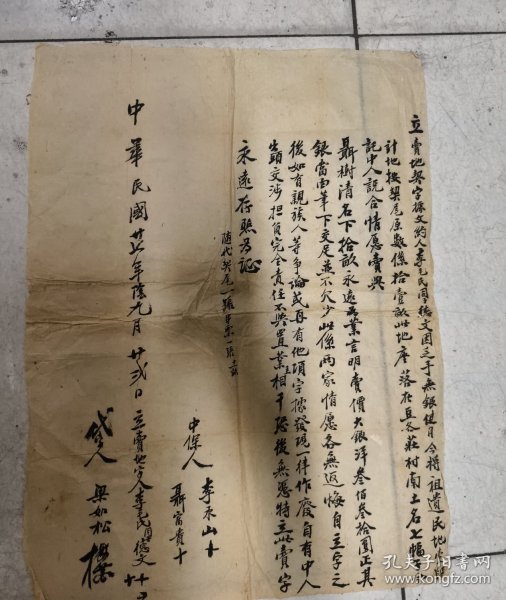 立賣地契字據文約人李宅民國德文因乏手無銀使用今將祖遺民地
計地按契尾原數係拾壹畝此地座落在豆各莊村南土名七
記中人說合情愿賣與
聶樹清名下拾畝永遠為業言明賣價大銀洋叁佰叁拾圓正其
銀當面筆下交足並不欠少此係兩家情愿各無返悔自立字之
後如有親族人等爭論或再有他項字據發現一律作廢自有中人
出頭交涉担負完全責任不與置業主相干恐後無憑特立此賣字
永遠存照為証
隨代契尾一張
中保人 李永山 十
聶富貴 十
中華民國廿七年陰九月廿弍日立賣地字人李宅民國德文 十十
代筆人 樊如松
孔夫子旧书网